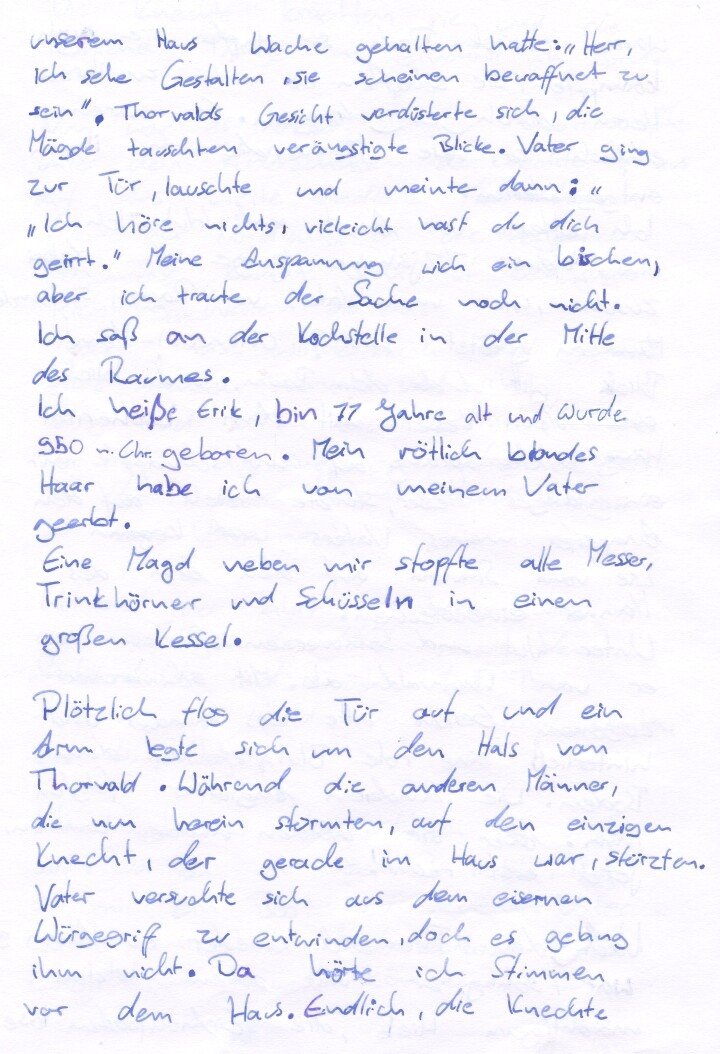 unserem Haus Wache gehalten hatte: „Herr,
ich sehe Gestalten, sie scheinen bewaffnet zu
sein“. Thorvalds Gesicht verdüsterte sich, die
Mägde tauschten verängstigte Blicke. Vater ging
zur Tür, lauschte und meinte dann: „
„Ich höre nichts, vieleicht hast du dich
geirrt.“ Meine Anspannung wich ein bischen,
aber ich traute der Sache noch nicht.
Ich saß an der Kochstelle in der Mitte
des Raumes.
Ich heiße Erik, bin 11 Jahre alt und wurde
950 n. Chr. geboren. Mein rötlich blondes
Haar habe ich von meinem Vater
geerbt.
Eine Magd neben mir stopfte alle Messer,
Trinkhörner und Schüsseln in einen
großen Kessel.
Plötzlich flog die Tür auf und ein
Arm legte sich um den Hals von
Thorvald. Während die anderen Männer,
die nun herein stürmten, auf den einzigen
Knecht, der gerade im Haus war, stürzten.
Vater versuchte sich aus dem eisernen
Würgegriff zu entwinden, doch es gelang
ihm nicht. Da hörte ich Stimmen
vor dem Haus. Endlich, die Knechte